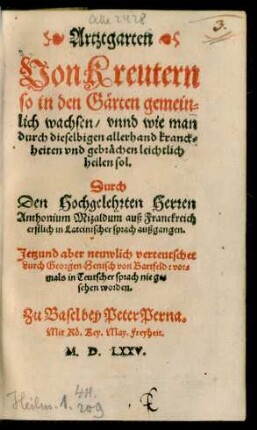 3.
Artzgarten
Von Kreutern
so in den Gärten gemein-
lich wachsen/ vnnd wie man
durch dieselbigen allerhand kranck-
heiten vnd gebrächen leichtlich
heilen sol.
Durch
Den Hochgelehrten Herren
Anthonium Mizaldum auß Franckreich
erstlich in Lateinischer sprach außgangen.
Jetzund aber neuwlich verteutschet
durch Georgen Henisch von Bartfeld: vor-
mals in Teutscher sprach nie ge-
sehen worden.
Zu Basel bey Peter Perna.
Mit Rö. Key. May. freyheit.
M. D. LXXV.
Heilm. 1.
209